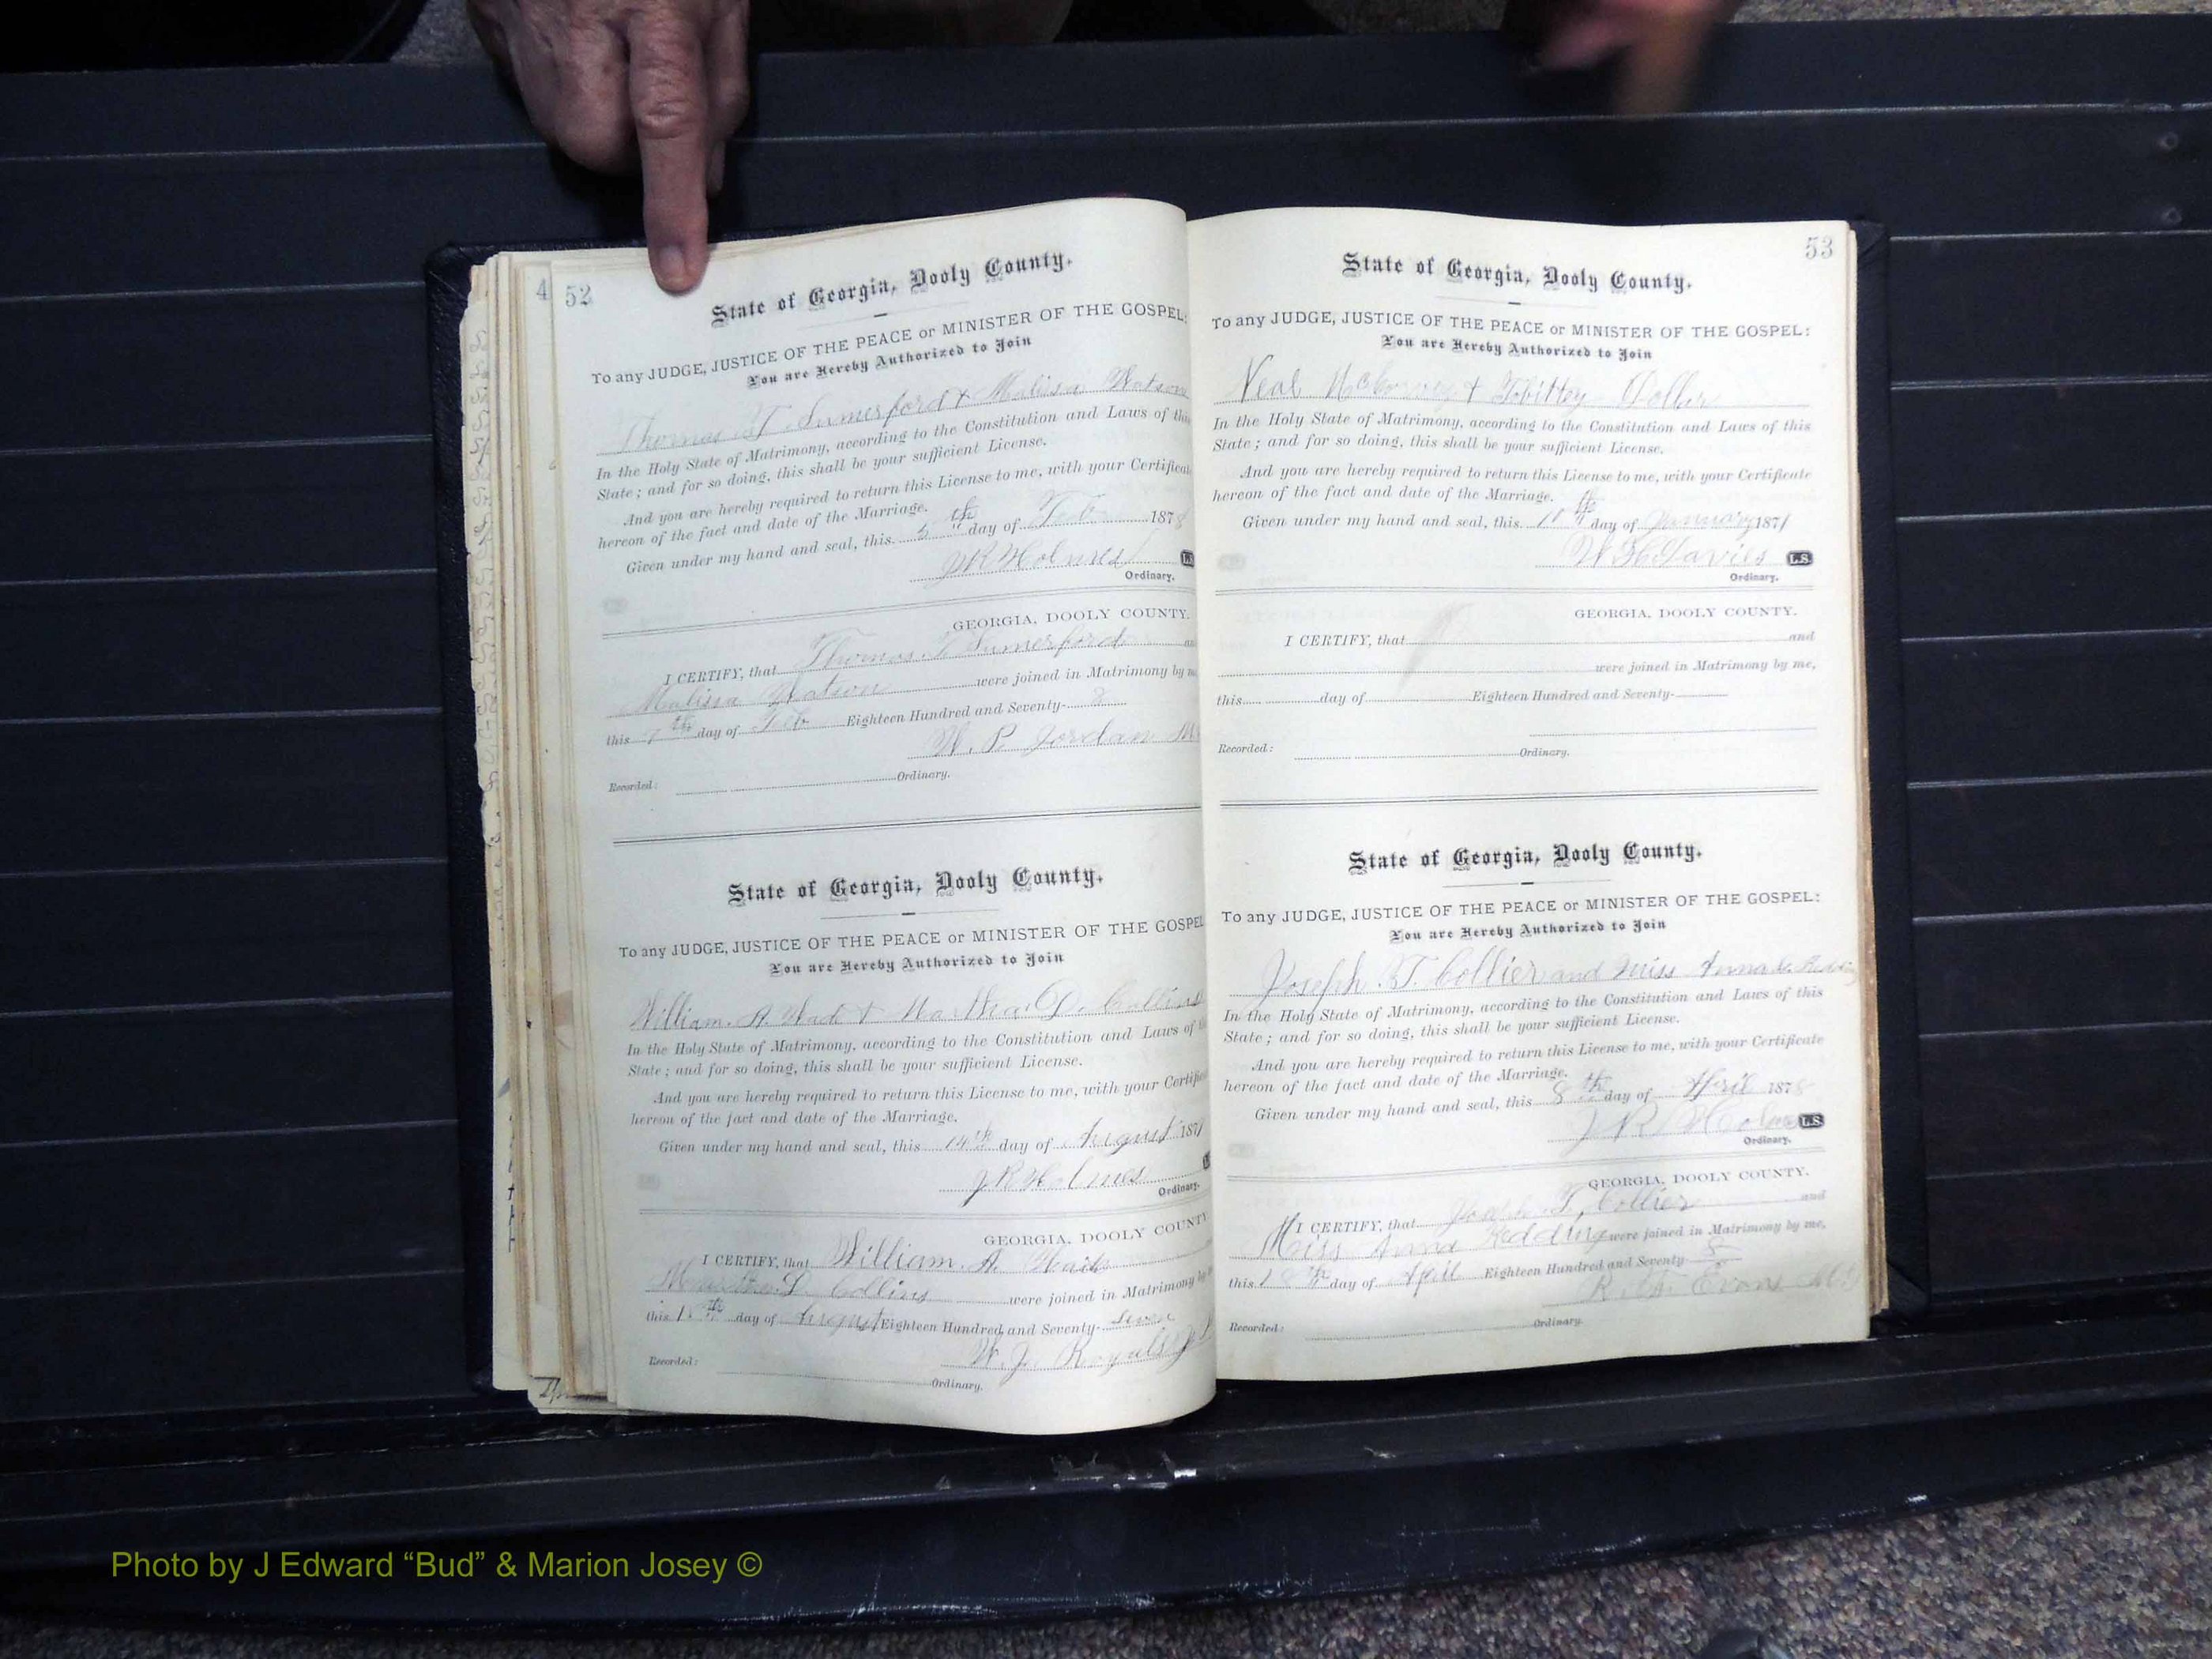 4
52
State of Georgia, Dooly County.
To any JUDGE, JUSTICE OF THE PEACE or MINISTER OF THE GOSPEL:
You are Hereby Authorized to Join
Thomas T Sumerford & Malissa Watson
In the Holy State of Matrimony, according to the Constitution and Laws of this
State; and for so doing, this shall be your sufficient License.
And you are hereby required to return this License to me, with your Certificat
hereon of the fact and date of the Marriage.
Given under my hand and seal, this 5th day of Feb 1878
J R Holmes L.S.
Ordinary.
GEORGIA, DOOLY COUNTY.
I CERTIFY, that Thomas T Sumerford an
Malissa Watson were joined in Matrimony by me
this 7th day of Feb Eighteen Hundred and Seventy- 8
W. P. Jordan
Recorded: Ordinary.
State of Georgia, Dooly County.
To any JUDGE, JUSTICE OF THE PEACE or MINISTER OF THE GOSPEL
You are Hereby Authorized to Join
William A. Wade & Martha D. Collins
In the Holy State of Matrimony, according to the Constitution and Laws of
State; and for so doing, this shall be your sufficient License.
And you are hereby required to return this License to me, with your Certific
hereon of the fact and date of the Marriage.
Given under my hand and seal, this 14th day of August 187
J R Holmes
Ordinary.
GEORGIA, DOOLY COUNTY
I CERTIFY, that William A.
Martha D. Collins were joined in Matrimony by
this day of August Eighteen Hundred and Seventy- Seven
W. J. Royals
Recorded: Ordinary.
53
State of Georgia, Dooly County.
To any JUDGE, JUSTICE OF THE PEACE or MINISTER OF THE GOSPEL:
You are Hereby Authorized to Join
Neal & Dollar
In the Holy State of Matrimony, according to the Constitution and Laws of this
State; and for so doing, this shall be your sufficient License.
And you are hereby required to return this License to me, with your Certificate
hereon of the fact and date of the Marriage.
Given under my hand and seal, this day of January 187
W. H. Davies L.S.
Ordinary.
GEORGIA, DOOLY COUNTY.
I CERTIFY, that and
were joined in Matrimony by me,
this day of Eighteen Hundred and Seventy-
Recorded: Ordinary.
State of Georgia, Dooly County.
To any JUDGE, JUSTICE OF THE PEACE or MINISTER OF THE GOSPEL:
You are Hereby Authorized to Join
Joseph T. Collier and Miss Anna
In the Holy State of Matrimony, according to the Constitution and Laws of this
State; and for so doing, this shall be your sufficient License.
And you are hereby required to return this License to me, with your Certificate
hereon of the fact and date of the Marriage.
Given under my hand and seal, this 8th day of April 1878
J R Holmes L.S.
Ordinary.
GEORGIA, DOOLY COUNTY.
I CERTIFY, that Joseph T. Collier and
Miss Anna Redding were joined in Matrimony by me,
this day of April Eighteen Hundred and Seventy 8
Evans
Recorded: Ordinary.
Photo by J Edward “Bud” & Marion Josey ©